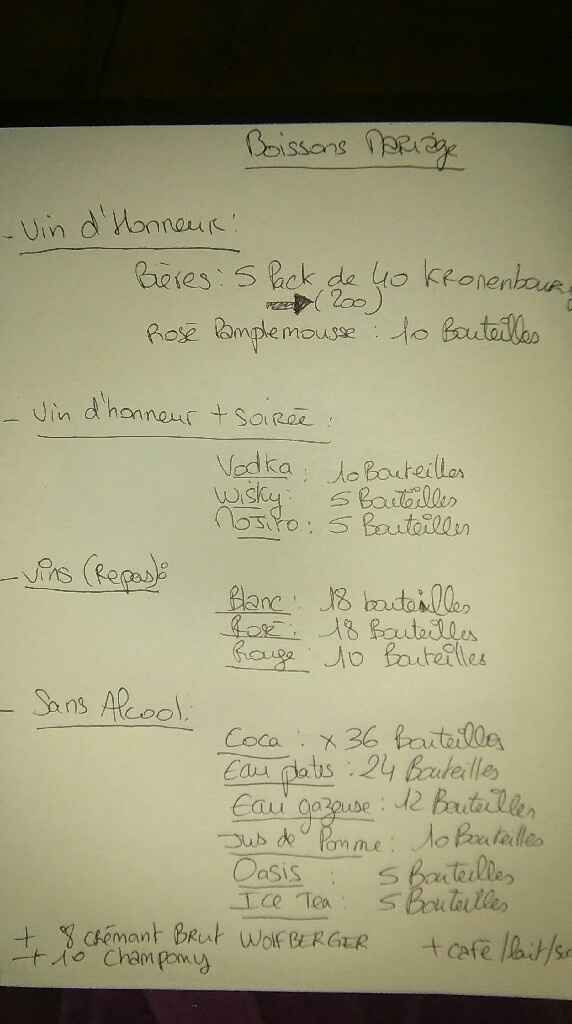 Boissons Mariage
- Vin d'Honneur :
Bières : 5 Pack de 40 Kronenbourg
(200)
Rosé Pamplemousse : 10 Bouteilles
- Vin d'honneur + soirée :
Vodka : 10 Bouteilles
Wisky : 5 Bouteilles
Mojito : 5 Bouteilles
- Vins (Repas) :
Blanc : 18 bouteilles
Rosé : 18 Bouteilles
Rouge : 10 Bouteilles
- Sans Alcool :
Coca : x 36 Bouteilles
Eau plates : 24 Bouteilles
Eau gazeuse : 12 Bouteilles
Jus de Pomme : 10 Bouteilles
Oasis : 5 Bouteilles
Ice Tea : 5 Bouteilles
+ 8 crémant Brut WOLFBERGER + café/lait/
+ 10 Champomy